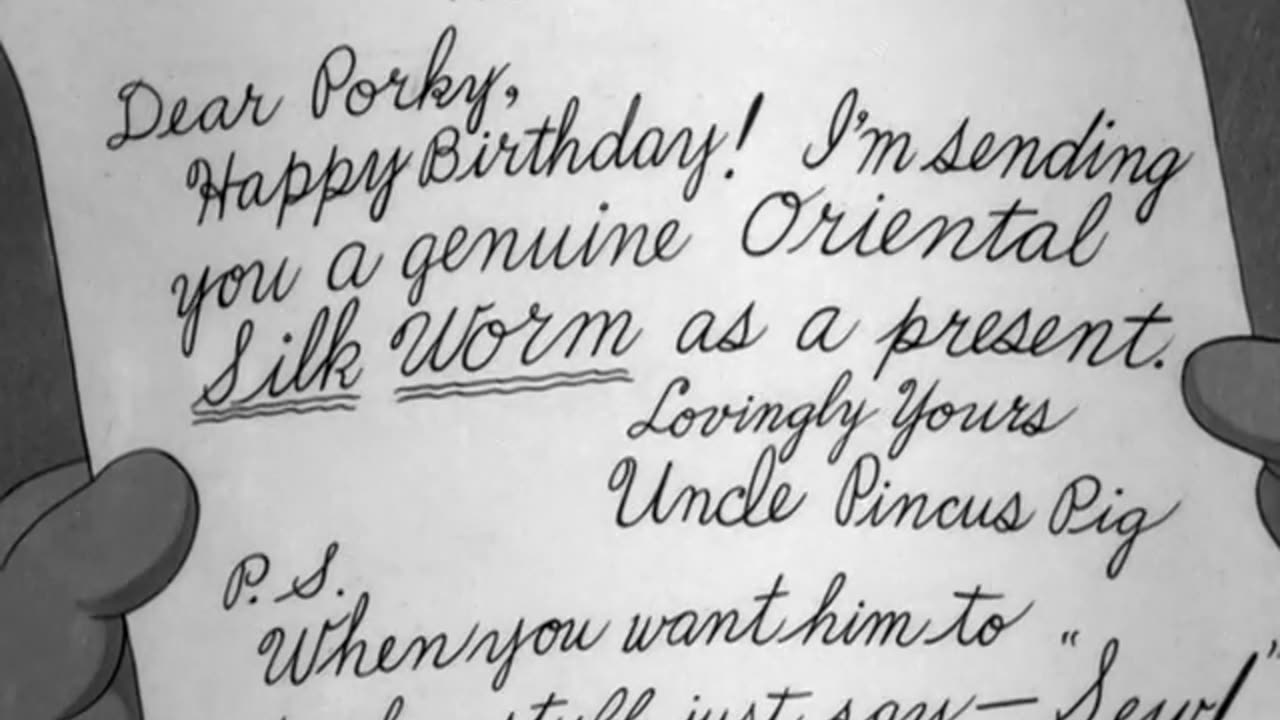 Dear Porky,
Happy Birthday! I'm sending
you a genuine Oriental
Silk Worm as a present.
Lovingly Yours
Uncle Pincus Pig
P. S.
When you want him to
stuff just say — "Sew!"